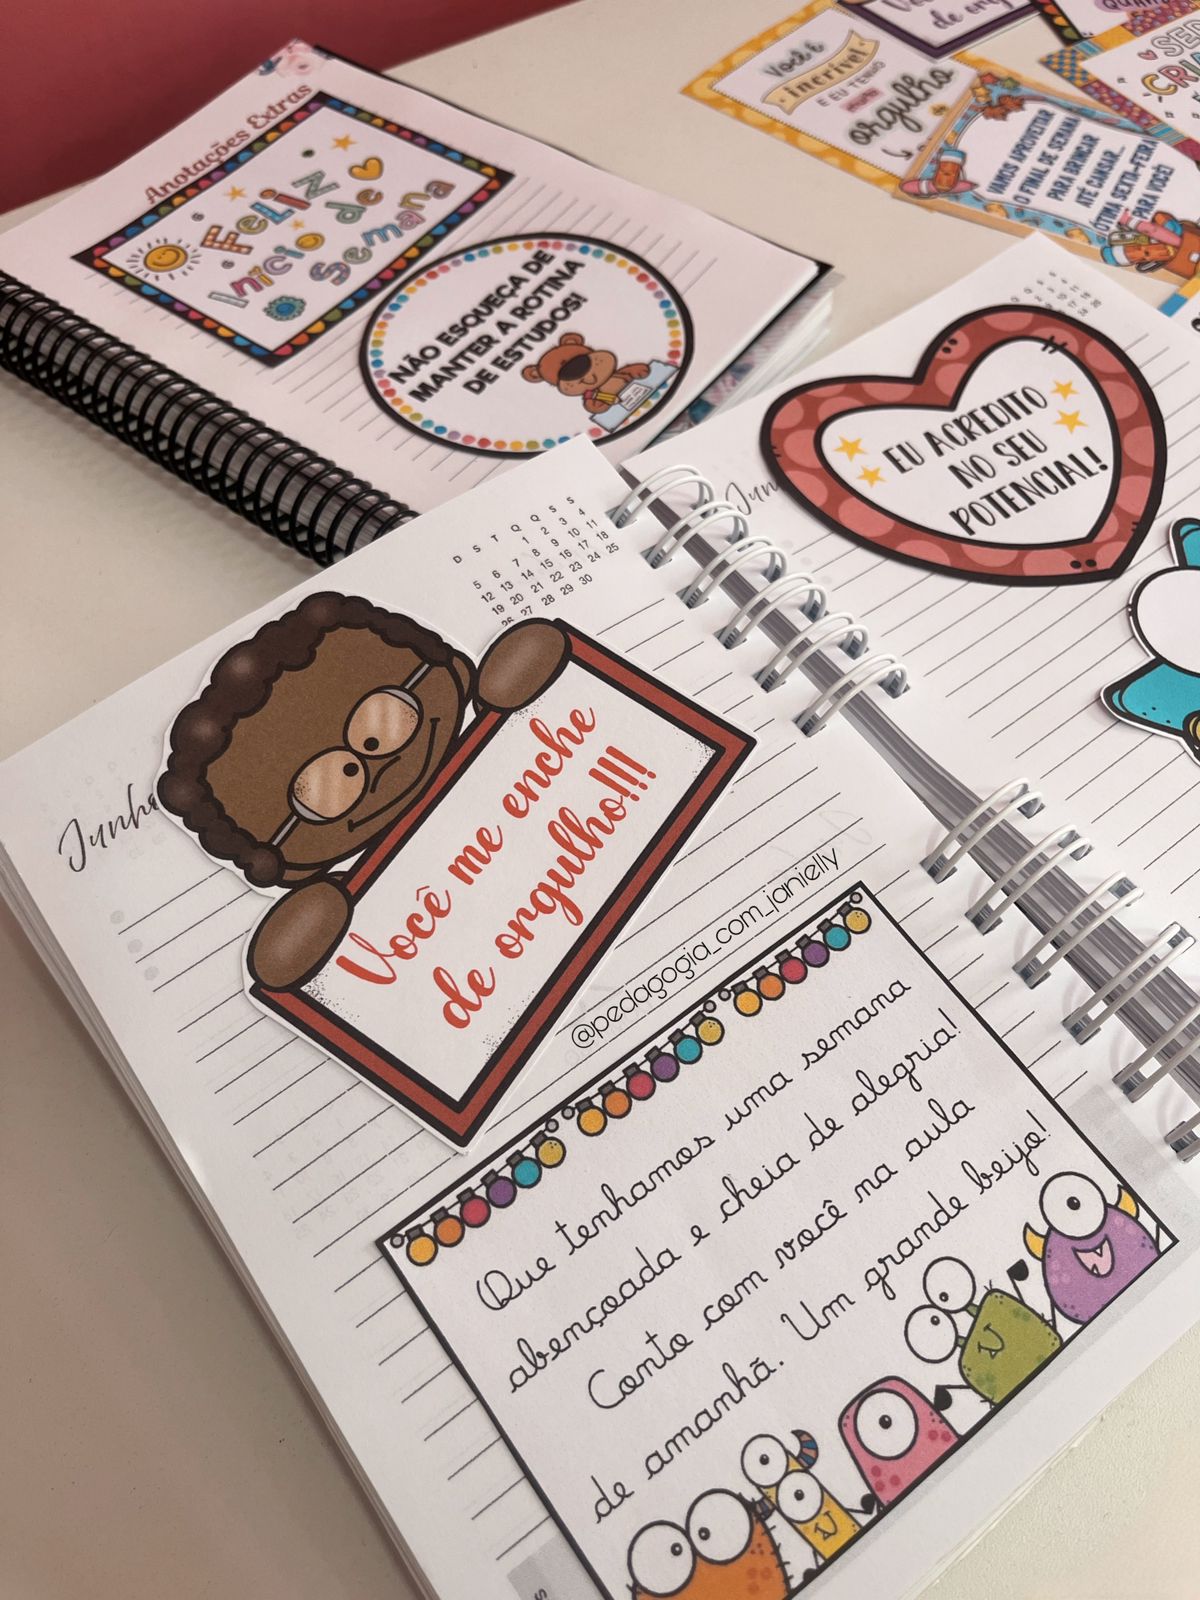 Anotações Extras
Feliz
Início de
Semana
NÃO ESQUEÇA DE
MANTER A ROTINA
DE ESTUDOS!
Você é
incrível
E EU TENHO
orgulho
de
VAMOS APROVEITAR
O FINAL DE SEMANA
PARA BRINCAR
ATÉ CANSAR...
ÓTIMA SEXTA-FEIRA
PARA VOCÊ!
EU ACREDITO
NO SEU
POTENCIAL!
D S T Q Q S S
1 2 3 4
5 6 7 8 9 10 11
12 13 14 15 16 17 18
19 20 21 22 23 24 25
26 27 28 29 30
Você me enche
de orgulho!!!
@pedagogia_com_janielly
Que tenhamos uma semana
abençoada e cheia de alegria!
Conto com você na aula
de amanhã. Um grande beijo!